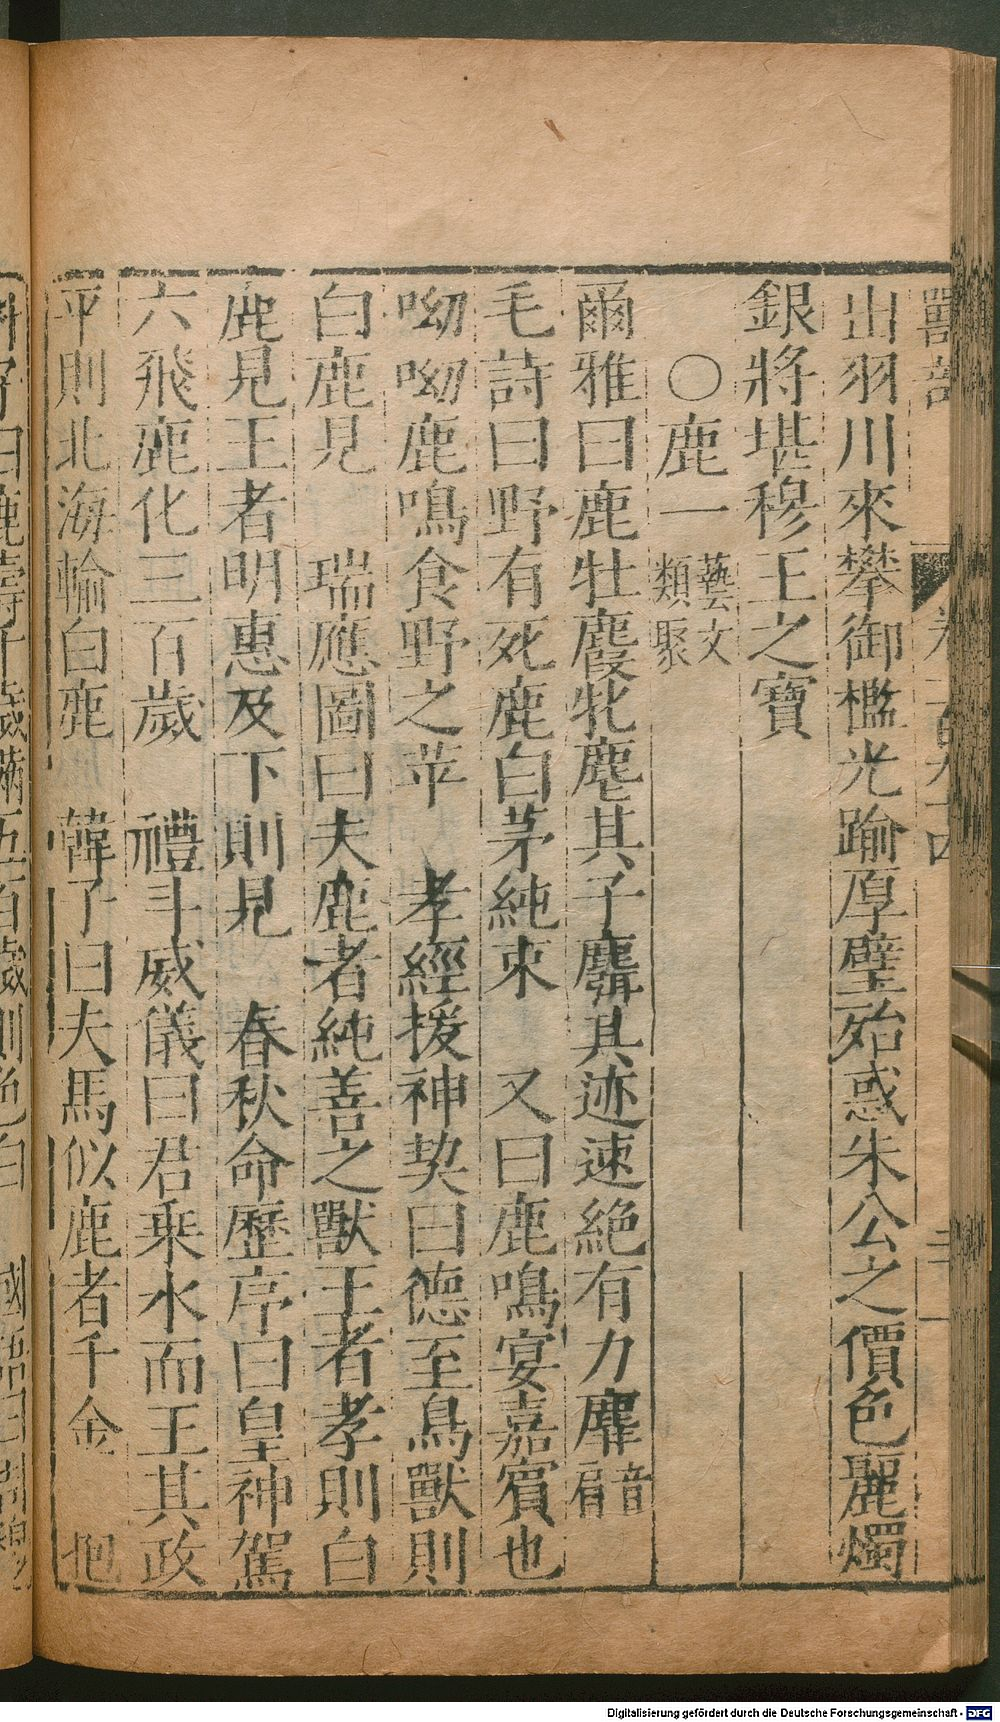 獸部
出羽川來攀御檻光踰厚璧始惑朱公之價色麗燭
銀將堪穆王之寶
〇鹿一 藝文類聚
爾雅曰鹿牡麚牝麀其子麛其迹速絕有力麉音肩
毛詩曰野有死鹿白茅純束 又曰鹿鳴宴嘉賓也
呦呦鹿鳴食野之苹 孝經援神契曰德至鳥獸則
白鹿見 瑞應圖曰夫鹿者純善之獸王者孝則白
鹿見王者明惠及下則見 春秋命歷序曰皇神駕
六飛鹿化三百歲 禮斗威儀曰君乘水而王其政
平則北海輸白鹿 韓子曰夫馬似鹿者千金 抱
Digitalisierung gefördert durch die Deutsche Forschungsgemeinschaft - DFG